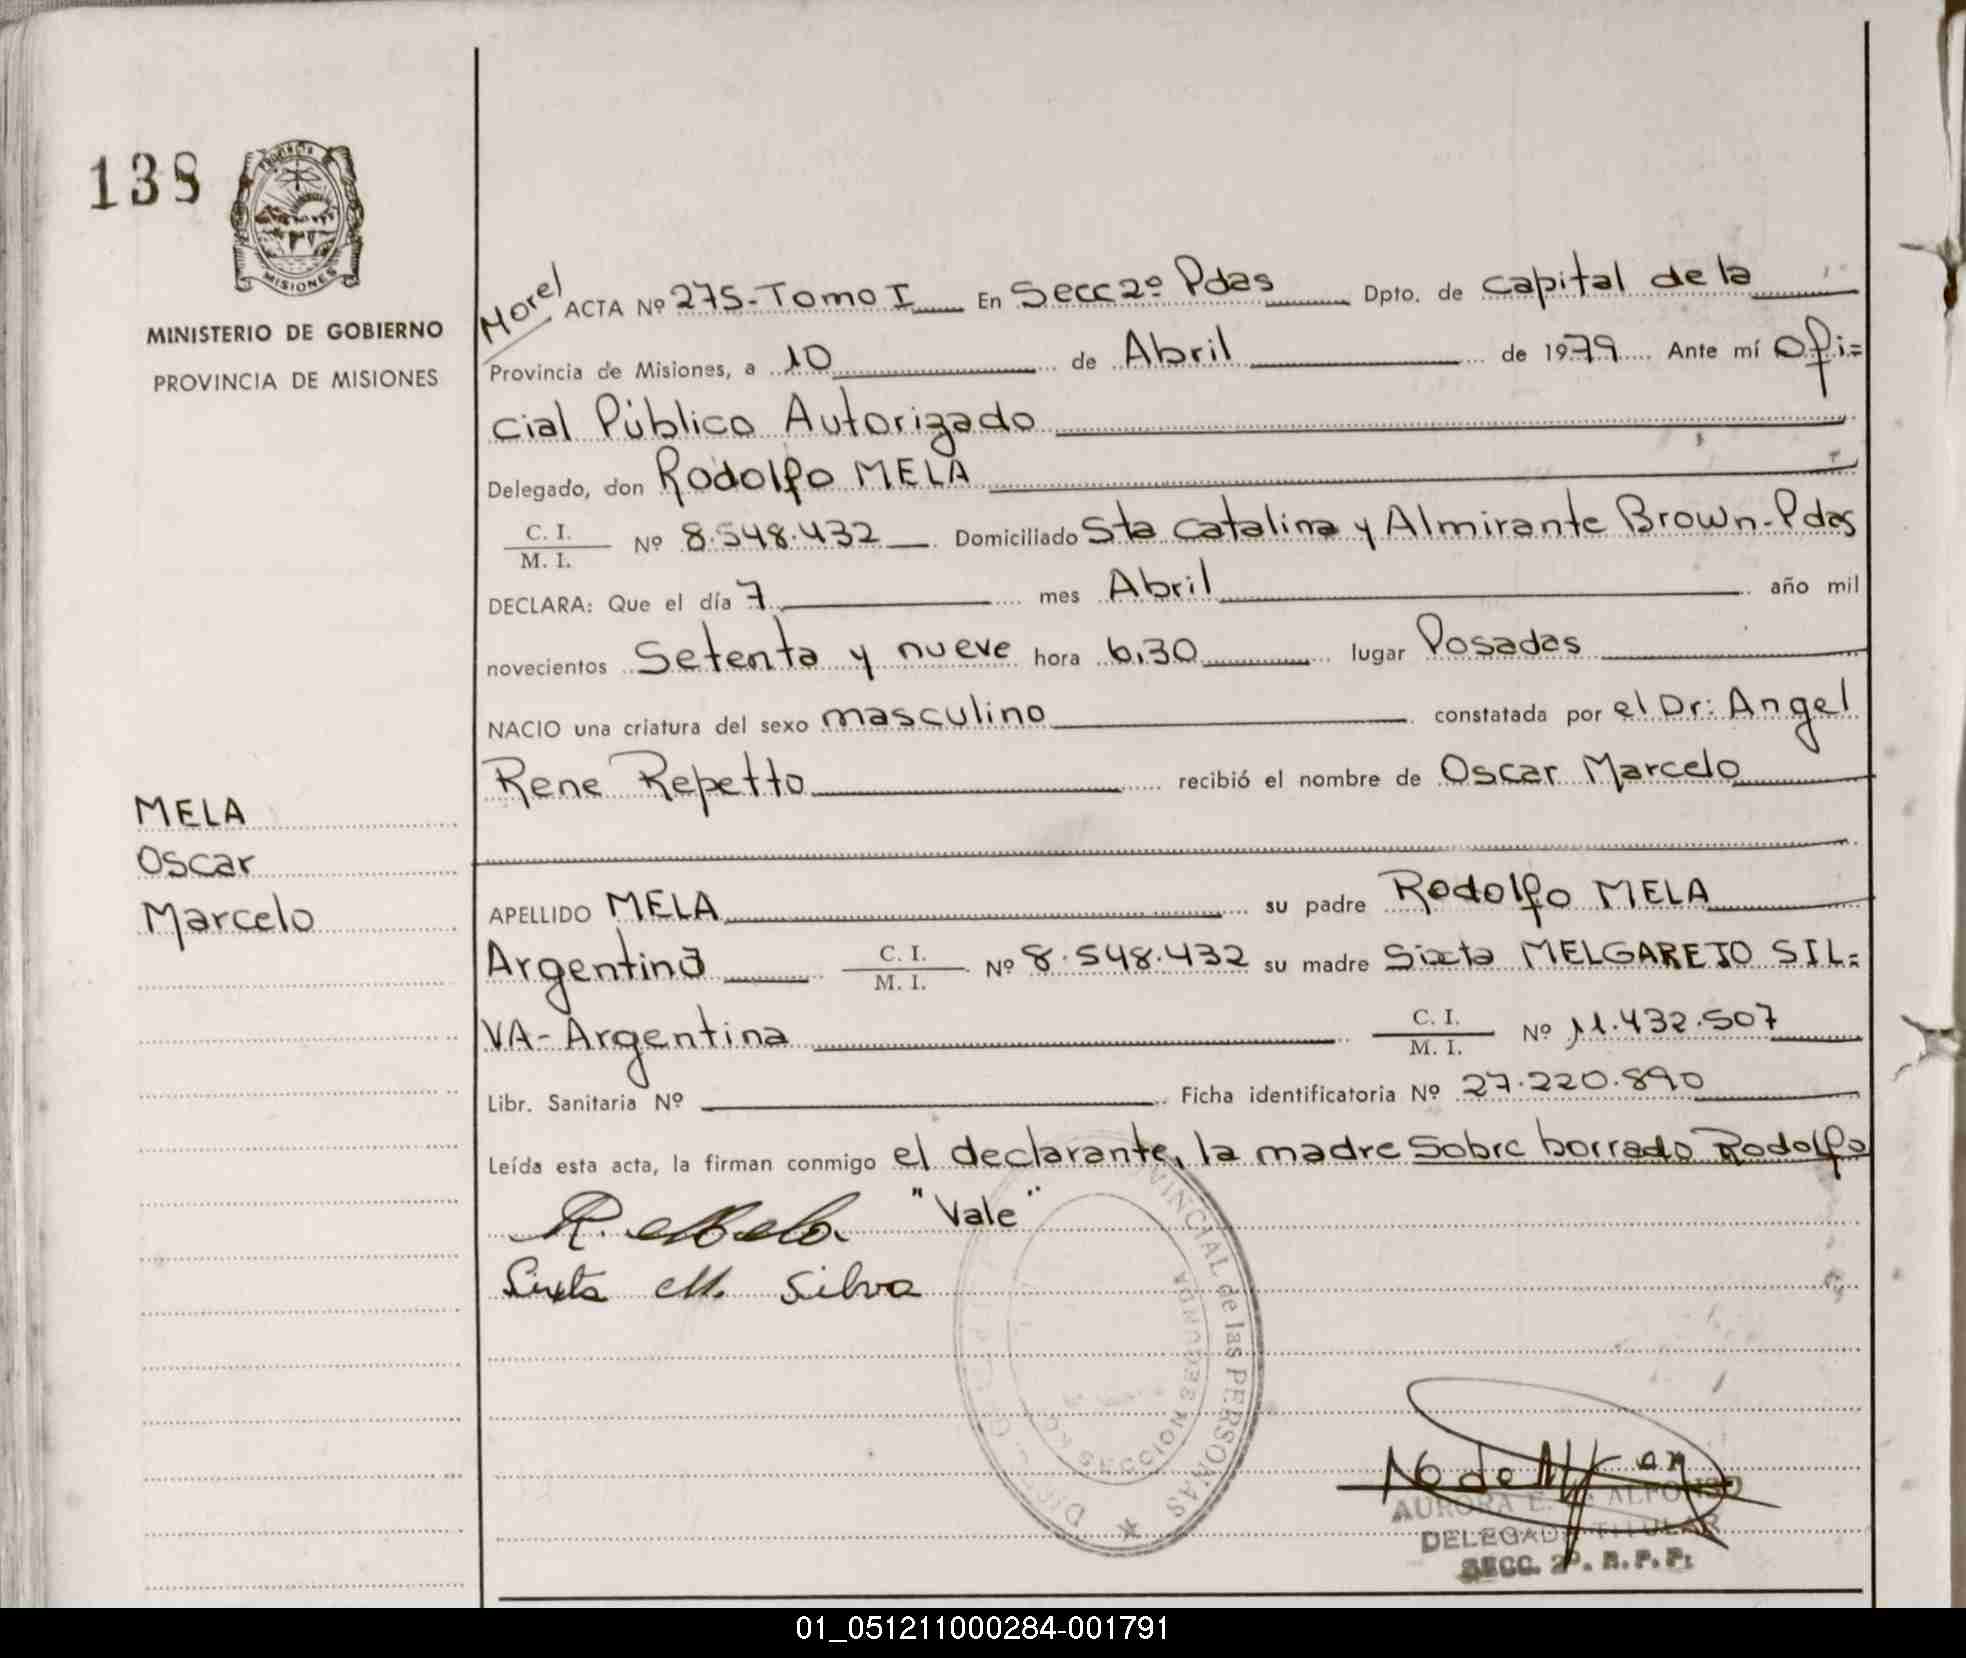 138
PROVINCIA
MISIONES
MINISTERIO DE GOBIERNO
PROVINCIA DE MISIONES
MELA
Oscar
Marcelo
Morel
ACTA Nº 275-Tomo I En Secc 2º Pdas Dpto. de capital de la
Provincia de Misiones, a 10 de Abril de 1979 Ante mí Ofi=
cial Público Autorizado
Delegado, don Rodolfo MELA
C. I.
M. I. Nº 8.548.432 Domiciliado Sta Catalina y Almirante Brown-Pdas
DECLARA: Que el día 7 mes Abril año mil
novecientos Setenta y nueve hora 6,30 lugar Posadas
NACIO una criatura del sexo masculino constatada por el Dr: Angel
Rene Repetto recibió el nombre de Oscar Marcelo
APELLIDO MELA su padre Rodolfo MELA
Argentino C. I. M. I. Nº 8.548.432 su madre Sixta MELGAREJO SIL=
VA-Argentina C. I. M. I. Nº 11.432.507
Libr. Sanitaria Nº Ficha identificatoria Nº 27.220.890
Leída esta acta, la firman conmigo el declarante, la madre Sobre borrado Rodolfo
"Vale"
R. Mela
Sixta M. Silva
VINCIAL de las PERSONAS
SECCION SEGUNDA
AURORA E. de ALFONSO
DELEGADA TITULAR
SECC. 2º. R. P. P.
01_051211000284-001791